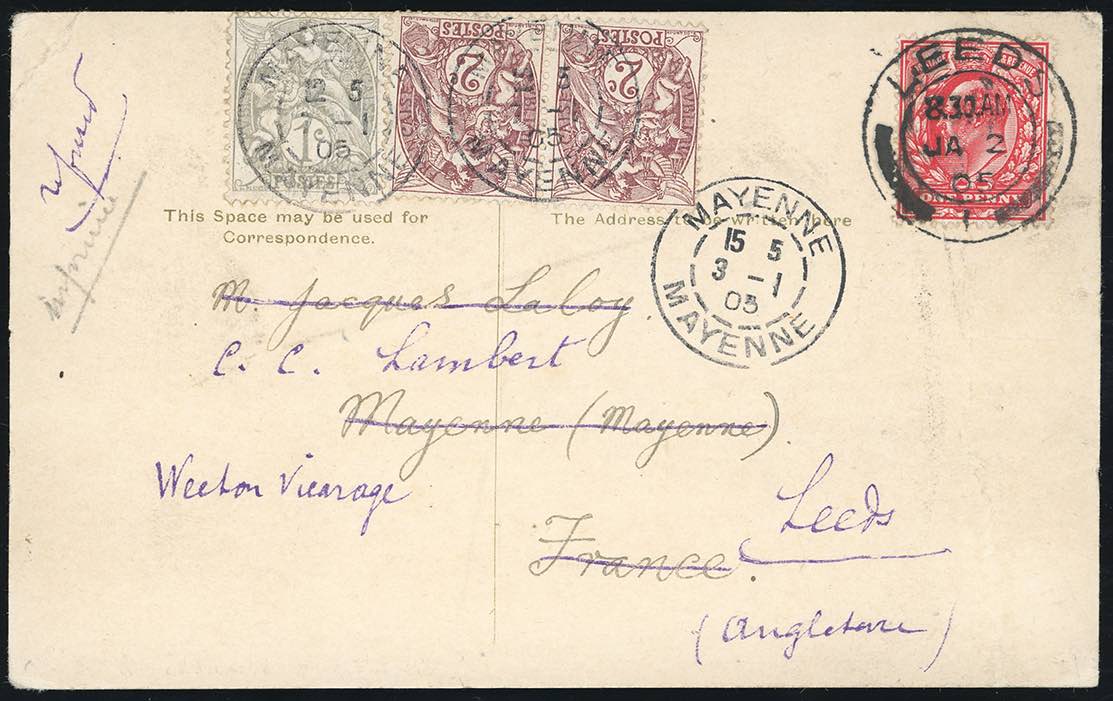 MAYENNE
12 5
-1
05
MAYENNE
1c
POSTES
MAYENNE
5
-1
05
MAYENNE
2c
POSTES
2c
POSTES
LEEDS
8.30AM
JA 2
05
1
ONE PENNY
refused
This Space may be used for
Correspondence.
The Address to be written here
MAYENNE
15 5
3 -1
05
MAYENNE
M. Jacques Laloy
C. C. Lambert
Mayenne (Mayenne)
Weeton Vicarage
Leeds
France.
(Angleterre)